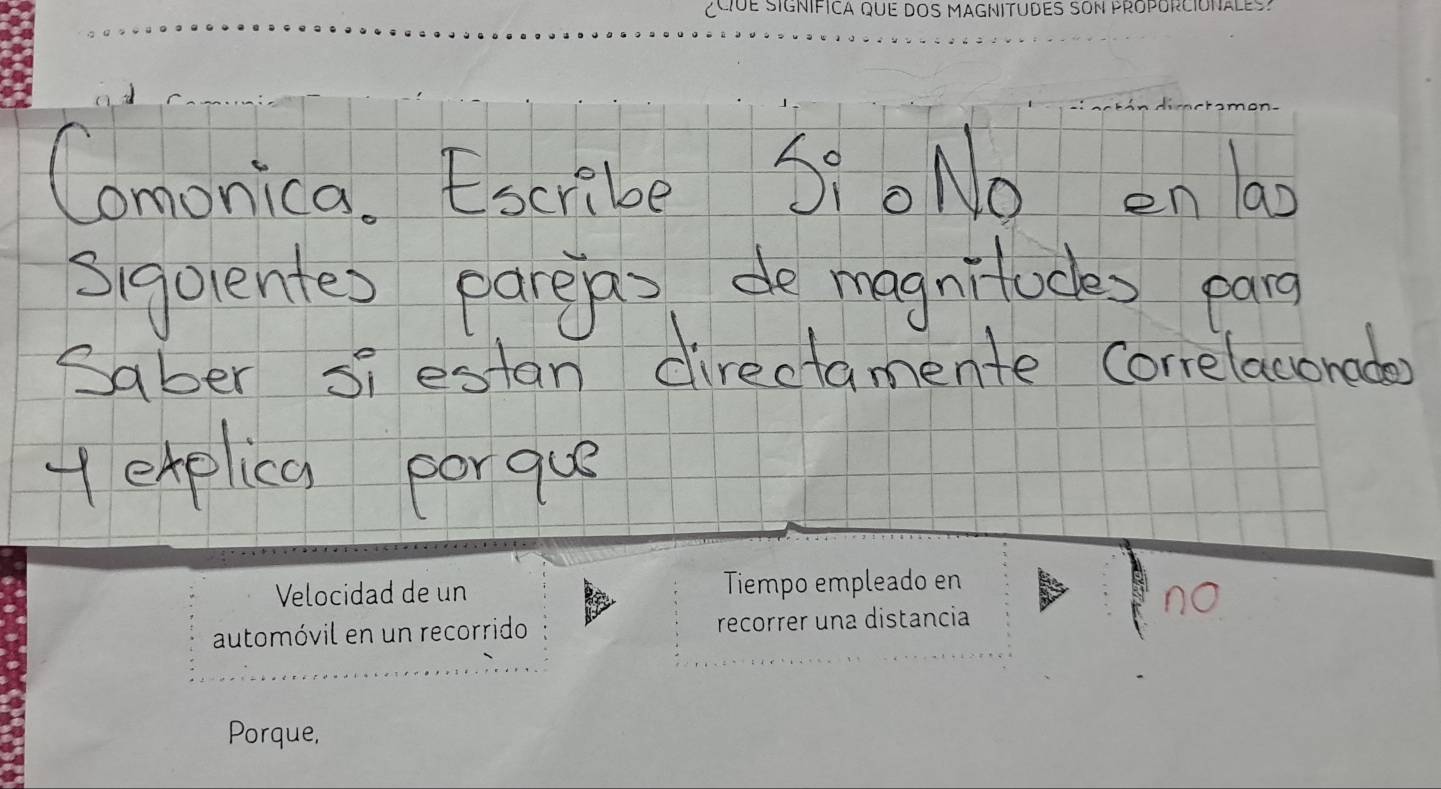 ¿QUE SIGNIFICA QUE DOS MAGNITUDES SON PROPORCIONALES?
Comonica. Escribe Si o No en las
siguientes parejas de magnitudes para
Saber si estan directamente correlacionados
y explica porque
Velocidad de un
automóvil en un recorrido
Tiempo empleado en
recorrer una distancia
no
Porque,